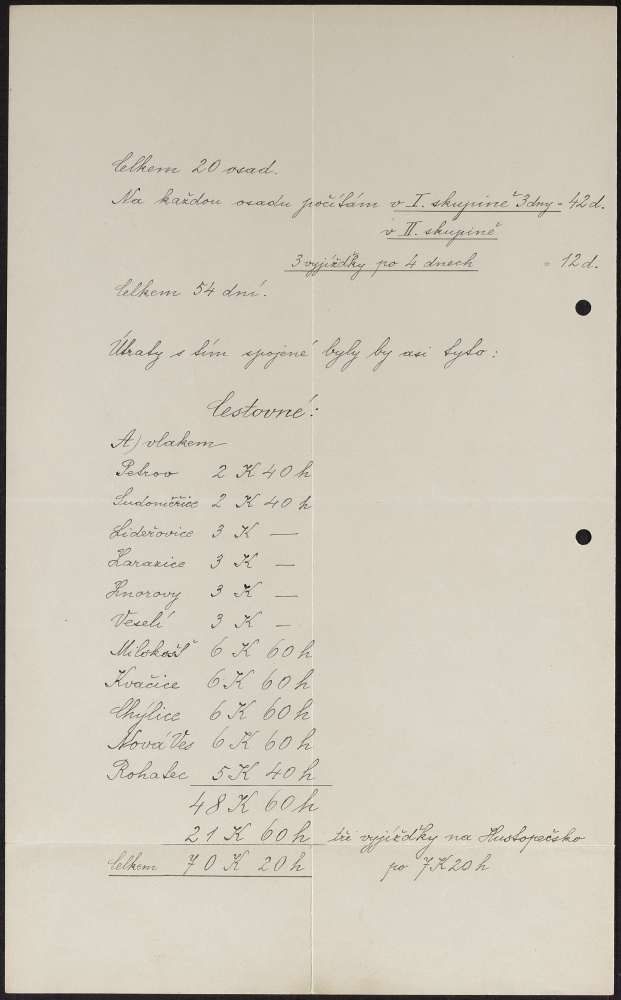 Celkem 20 osad.
Na každou osadu počítám v I. skupině 3 dny = 42 d.
v II. skupině
3 vyjížďky po 4 dnech = 12 d.
Celkem 54 dní.
Útraty s tím spojené byly by asi tyto:
Cestovné:
A) vlakem
Petrov 2 K 40 h
Sudoměřice 2 K 40 h
Lideřovice 3 K —
Žarazice 3 K —
Znorovy 3 K —
Veselí 3 K —
Milokošť 6 K 60 h
Kvačice 6 K 60 h
Chýlice 6 K 60 h
Nová Ves 6 K 60 h
Rohatec 5 K 40 h
48 K 60 h
21 K 60 h tři vyjížďky na Hustopečsko
Celkem 70 K 20 h po 7 K 20 h